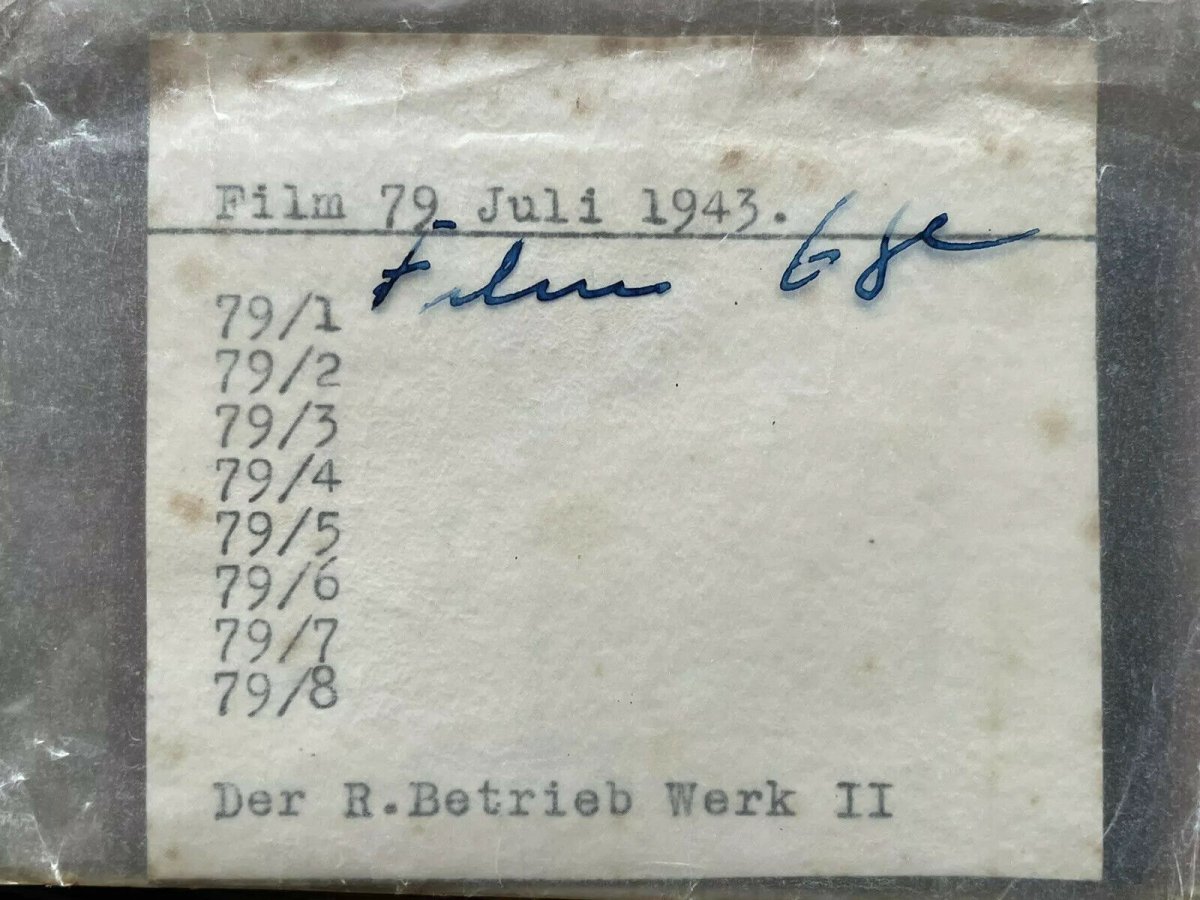 Film 79 Juli 1943.
Film
79/1
79/2
79/3
79/4
79/5
79/6
79/7
79/8
Der R.Betrieb Werk II